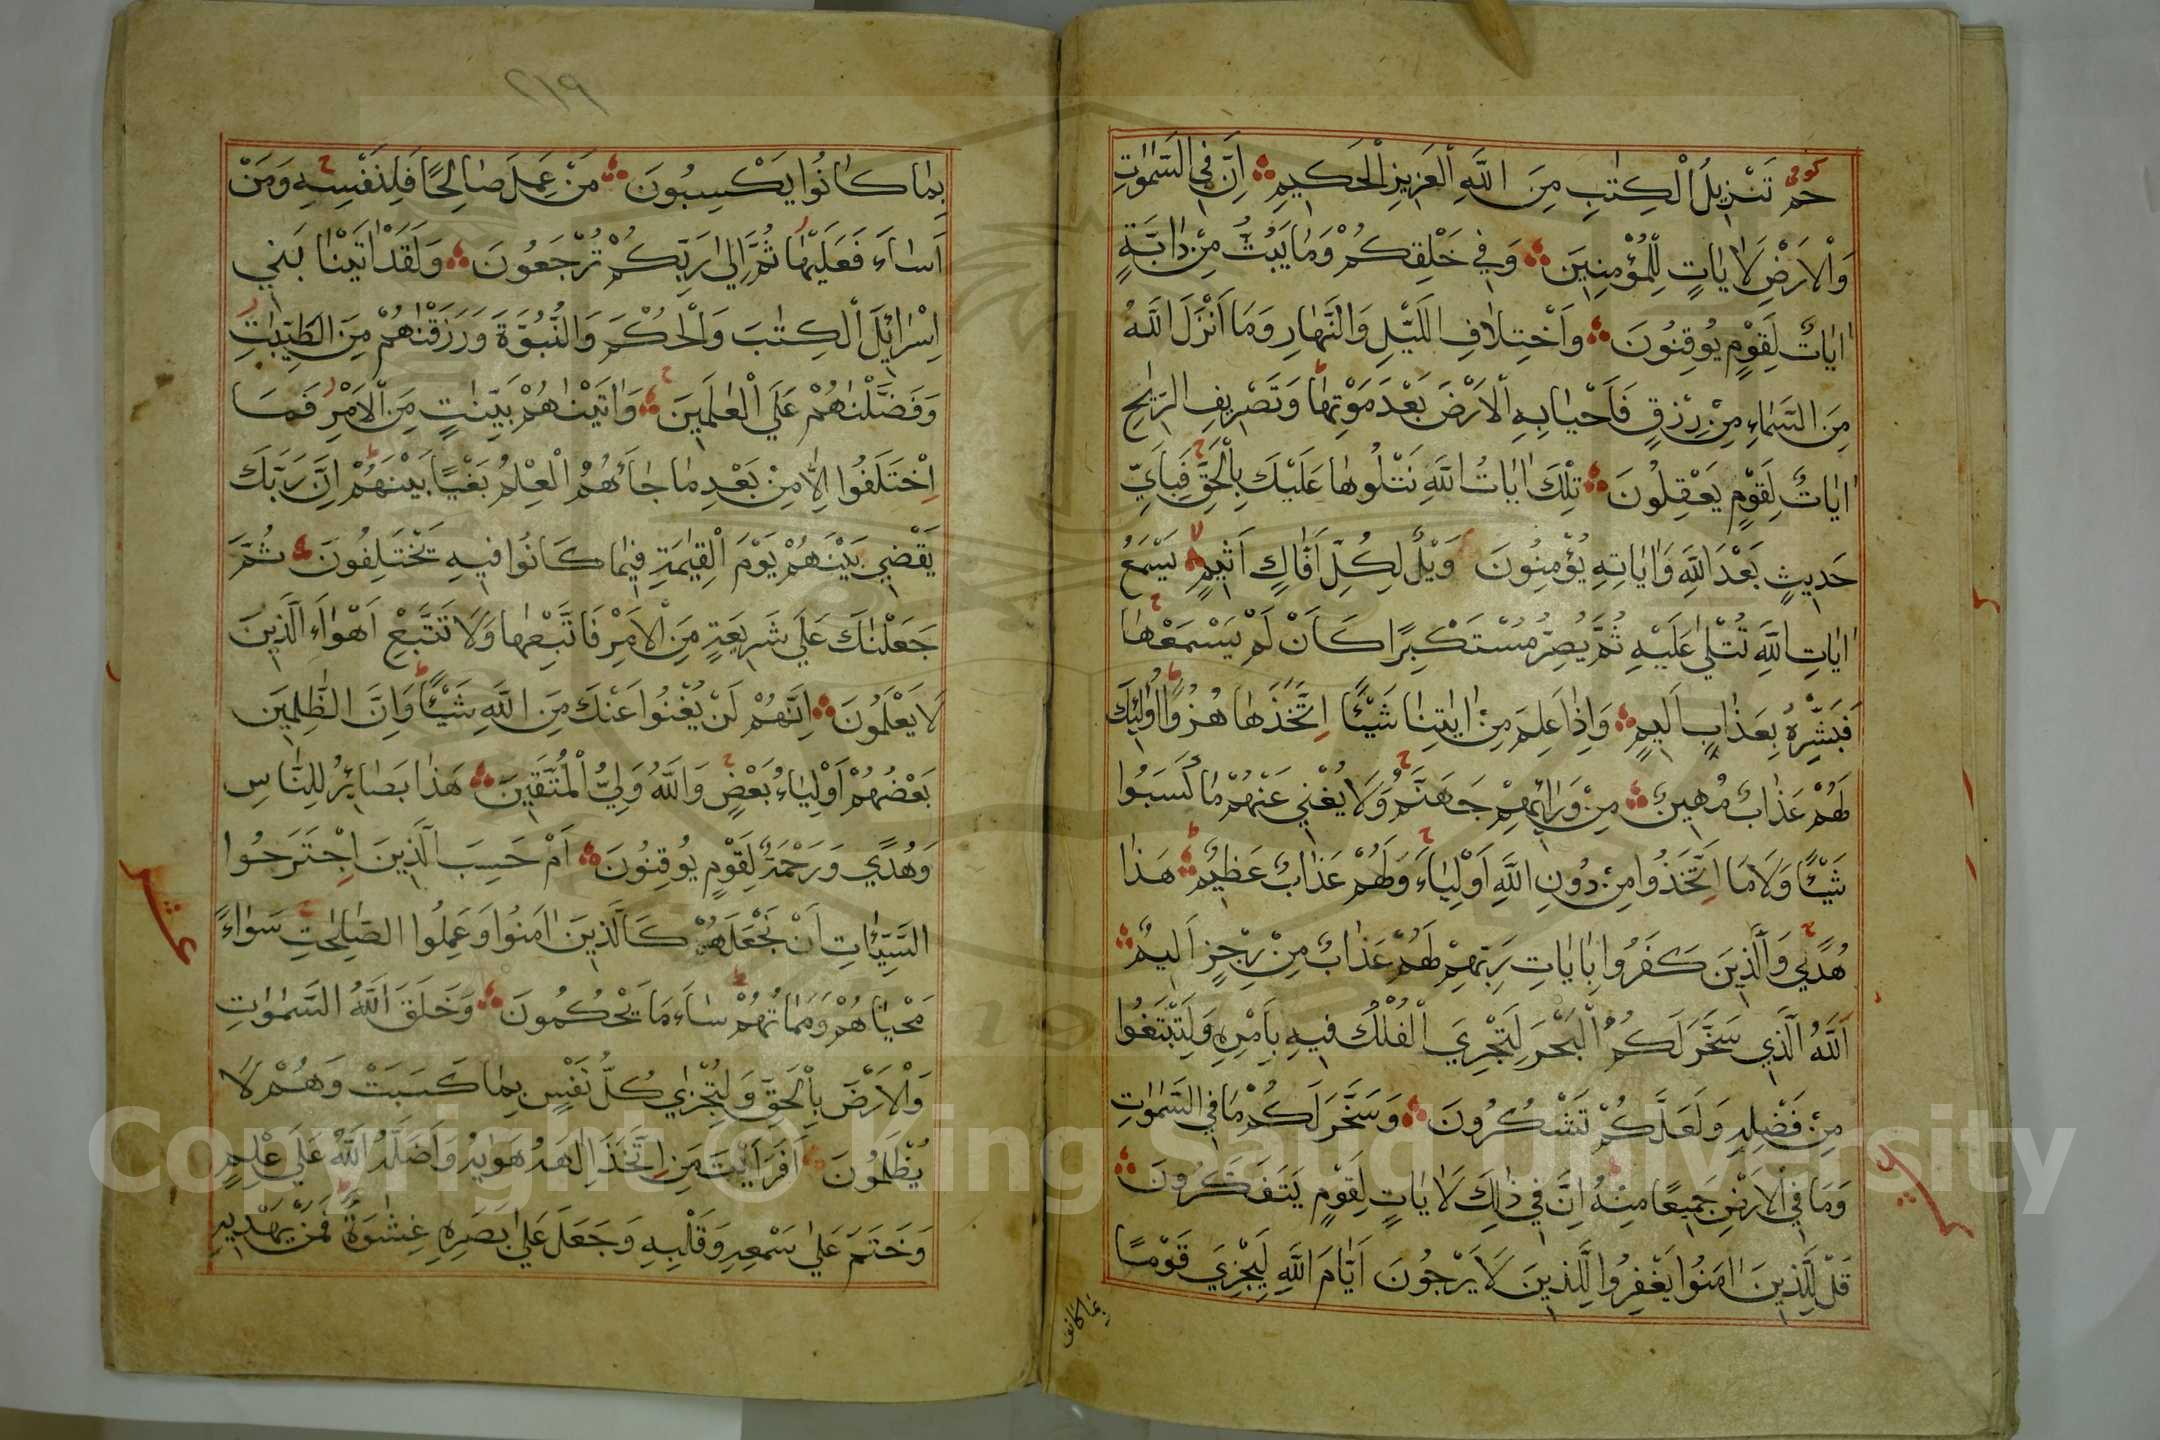 كوفى
حم تَنْزِيلُ الْكِتٰبِ مِنَ اللّٰهِ الْعَزِيزِ الْحَكِيمِ اِنَّ فِي السَّمٰوٰتِ
وَالْاَرْضِ لَاٰيَاتٍ لِلْمُؤْمِنِينَ وَفِي خَلْقِكُمْ وَمَا يَبُثُّ مِنْ دَابَّةٍ
اٰيَاتٌ لِقَوْمٍ يُوقِنُونَ وَاخْتِلَافِ الَّيْلِ وَالنَّهَارِ وَمَا اَنْزَلَ اللّٰهُ
مِنَ السَّمَاءِ مِنْ رِزْقٍ فَاَحْيَا بِهِ الْاَرْضَ بَعْدَ مَوْتِهَا وَتَصْرِيفِ الرِّيٰحِ
اٰيَاتٌ لِقَوْمٍ يَعْقِلُونَ تِلْكَ اٰيَاتُ اللّٰهِ نَتْلُوهَا عَلَيْكَ بِالْحَقِّ فَبِاَيِّ
حَدِيثٍ بَعْدَ اللّٰهِ وَاٰيَاتِهِ يُؤْمِنُونَ وَيْلٌ لِكُلِّ اَفَّاكٍ اَثِيمٍ يَسْمَعُ
اٰيَاتِ اللّٰهِ تُتْلٰى عَلَيْهِ ثُمَّ يُصِرُّ مُسْتَكْبِرًا كَاَنْ لَمْ يَسْمَعْهَا
فَبَشِّرْهُ بِعَذَابٍ اَلِيمٍ وَاِذَا عَلِمَ مِنْ اٰيٰتِنَا شَيْـًٔا اِتَّخَذَهَا هُزُوًا اُولٰئِكَ
لَهُمْ عَذَابٌ مُهِينٌ مِنْ وَرَائِهِمْ جَهَنَّمُ وَلَا يُغْنِي عَنْهُمْ مَا كَسَبُوا
شَيْـًٔا وَلَا مَا اتَّخَذُوا مِنْ دُونِ اللّٰهِ اَوْلِيَاءَ وَلَهُمْ عَذَابٌ عَظِيمٌ هٰذَا
هُدًى وَالَّذِينَ كَفَرُوا بِاٰيَاتِ رَبِّهِمْ لَهُمْ عَذَابٌ مِنْ رِجْزٍ اَلِيمٌ
اَللّٰهُ الَّذِي سَخَّرَ لَكُمُ الْبَحْرَ لِتَجْرِيَ الْفُلْكُ فِيهِ بِاَمْرِهِ وَلِتَبْتَغُوا
مِنْ فَضْلِهِ وَلَعَلَّكُمْ تَشْكُرُونَ وَسَخَّرَ لَكُمْ مَا فِي السَّمٰوٰتِ
وَمَا فِي الْاَرْضِ جَمِيعًا مِنْهُ اِنَّ فِي ذٰلِكَ لَاٰيَاتٍ لِقَوْمٍ يَتَفَكَّرُونَ
قُلْ لِلَّذِينَ اٰمَنُوا يَغْفِرُوا لِلَّذِينَ لَا يَرْجُونَ اَيَّامَ اللّٰهِ لِيَجْزِيَ قَوْمًا
بما كانوا
٢١٩
بِمَا كَانُوا يَكْسِبُونَ مَنْ عَمِلَ صَالِحًا فَلِنَفْسِهِ وَمَنْ
اَسَاءَ فَعَلَيْهَا ثُمَّ اِلٰى رَبِّكُمْ تُرْجَعُونَ وَلَقَدْ اٰتَيْنَا بَنِي
اِسْرَائِلَ الْكِتٰبَ وَالْحُكْمَ وَالنُّبُوَّةَ وَرَزَقْنٰهُمْ مِنَ الطَّيِّبٰتِ
وَفَضَّلْنٰهُمْ عَلَي الْعٰلَمِينَ وَاٰتَيْنٰهُمْ بَيِّنٰتٍ مِنَ الْاَمْرِ فَمَا
اخْتَلَفُوا اِلَّا مِنْ بَعْدِ مَا جَاءَهُمُ الْعِلْمُ بَغْيًا بَيْنَهُمْ اِنَّ رَبَّكَ
يَقْضِي بَيْنَهُمْ يَوْمَ الْقِيٰمَةِ فِيمَا كَانُوا فِيهِ يَخْتَلِفُونَ ثُمَّ
جَعَلْنٰكَ عَلَي شَرِيعَةٍ مِنَ الْاَمْرِ فَاتَّبِعْهَا وَلَا تَتَّبِعْ اَهْوَاءَ الَّذِينَ
لَا يَعْلَمُونَ اِنَّهُمْ لَنْ يُغْنُوا عَنْكَ مِنَ اللّٰهِ شَيْـًٔا وَاِنَّ الظّٰلِمِينَ
بَعْضُهُمْ اَوْلِيَاءُ بَعْضٍ وَاللّٰهُ وَلِيُّ الْمُتَّقِينَ هٰذَا بَصَائِرُ لِلنَّاسِ
وَهُدًي وَرَحْمَةٌ لِقَوْمٍ يُوقِنُونَ اَمْ حَسِبَ الَّذِينَ اجْتَرَحُوا
السَّيِّـَٔاتِ اَنْ نَجْعَلَهُمْ كَالَّذِينَ اٰمَنُوا وَعَمِلُوا الصَّالِحٰتِ سَوَاءً
مَحْيَاهُمْ وَمَمَاتُهُمْ سَاءَ مَا يَحْكُمُونَ وَخَلَقَ اللّٰهُ السَّمٰوٰتِ
وَالْاَرْضَ بِالْحَقِّ وَلِتُجْزٰي كُلُّ نَفْسٍ بِمَا كَسَبَتْ وَهُمْ لَا
يُظْلَمُونَ اَفَرَاَيْتَ مَنِ اتَّخَذَ اِلٰهَهُ هَوٰيهُ وَاَضَلَّهُ اللّٰهُ عَلَي عِلْمٍ
وَخَتَمَ عَلٰي سَمْعِهِ وَقَلْبِهِ وَجَعَلَ عَلٰي بَصَرِهِ غِشٰوَةً فَمَنْ يَهْدِيهِ
عشر
Copyright © King Saud University